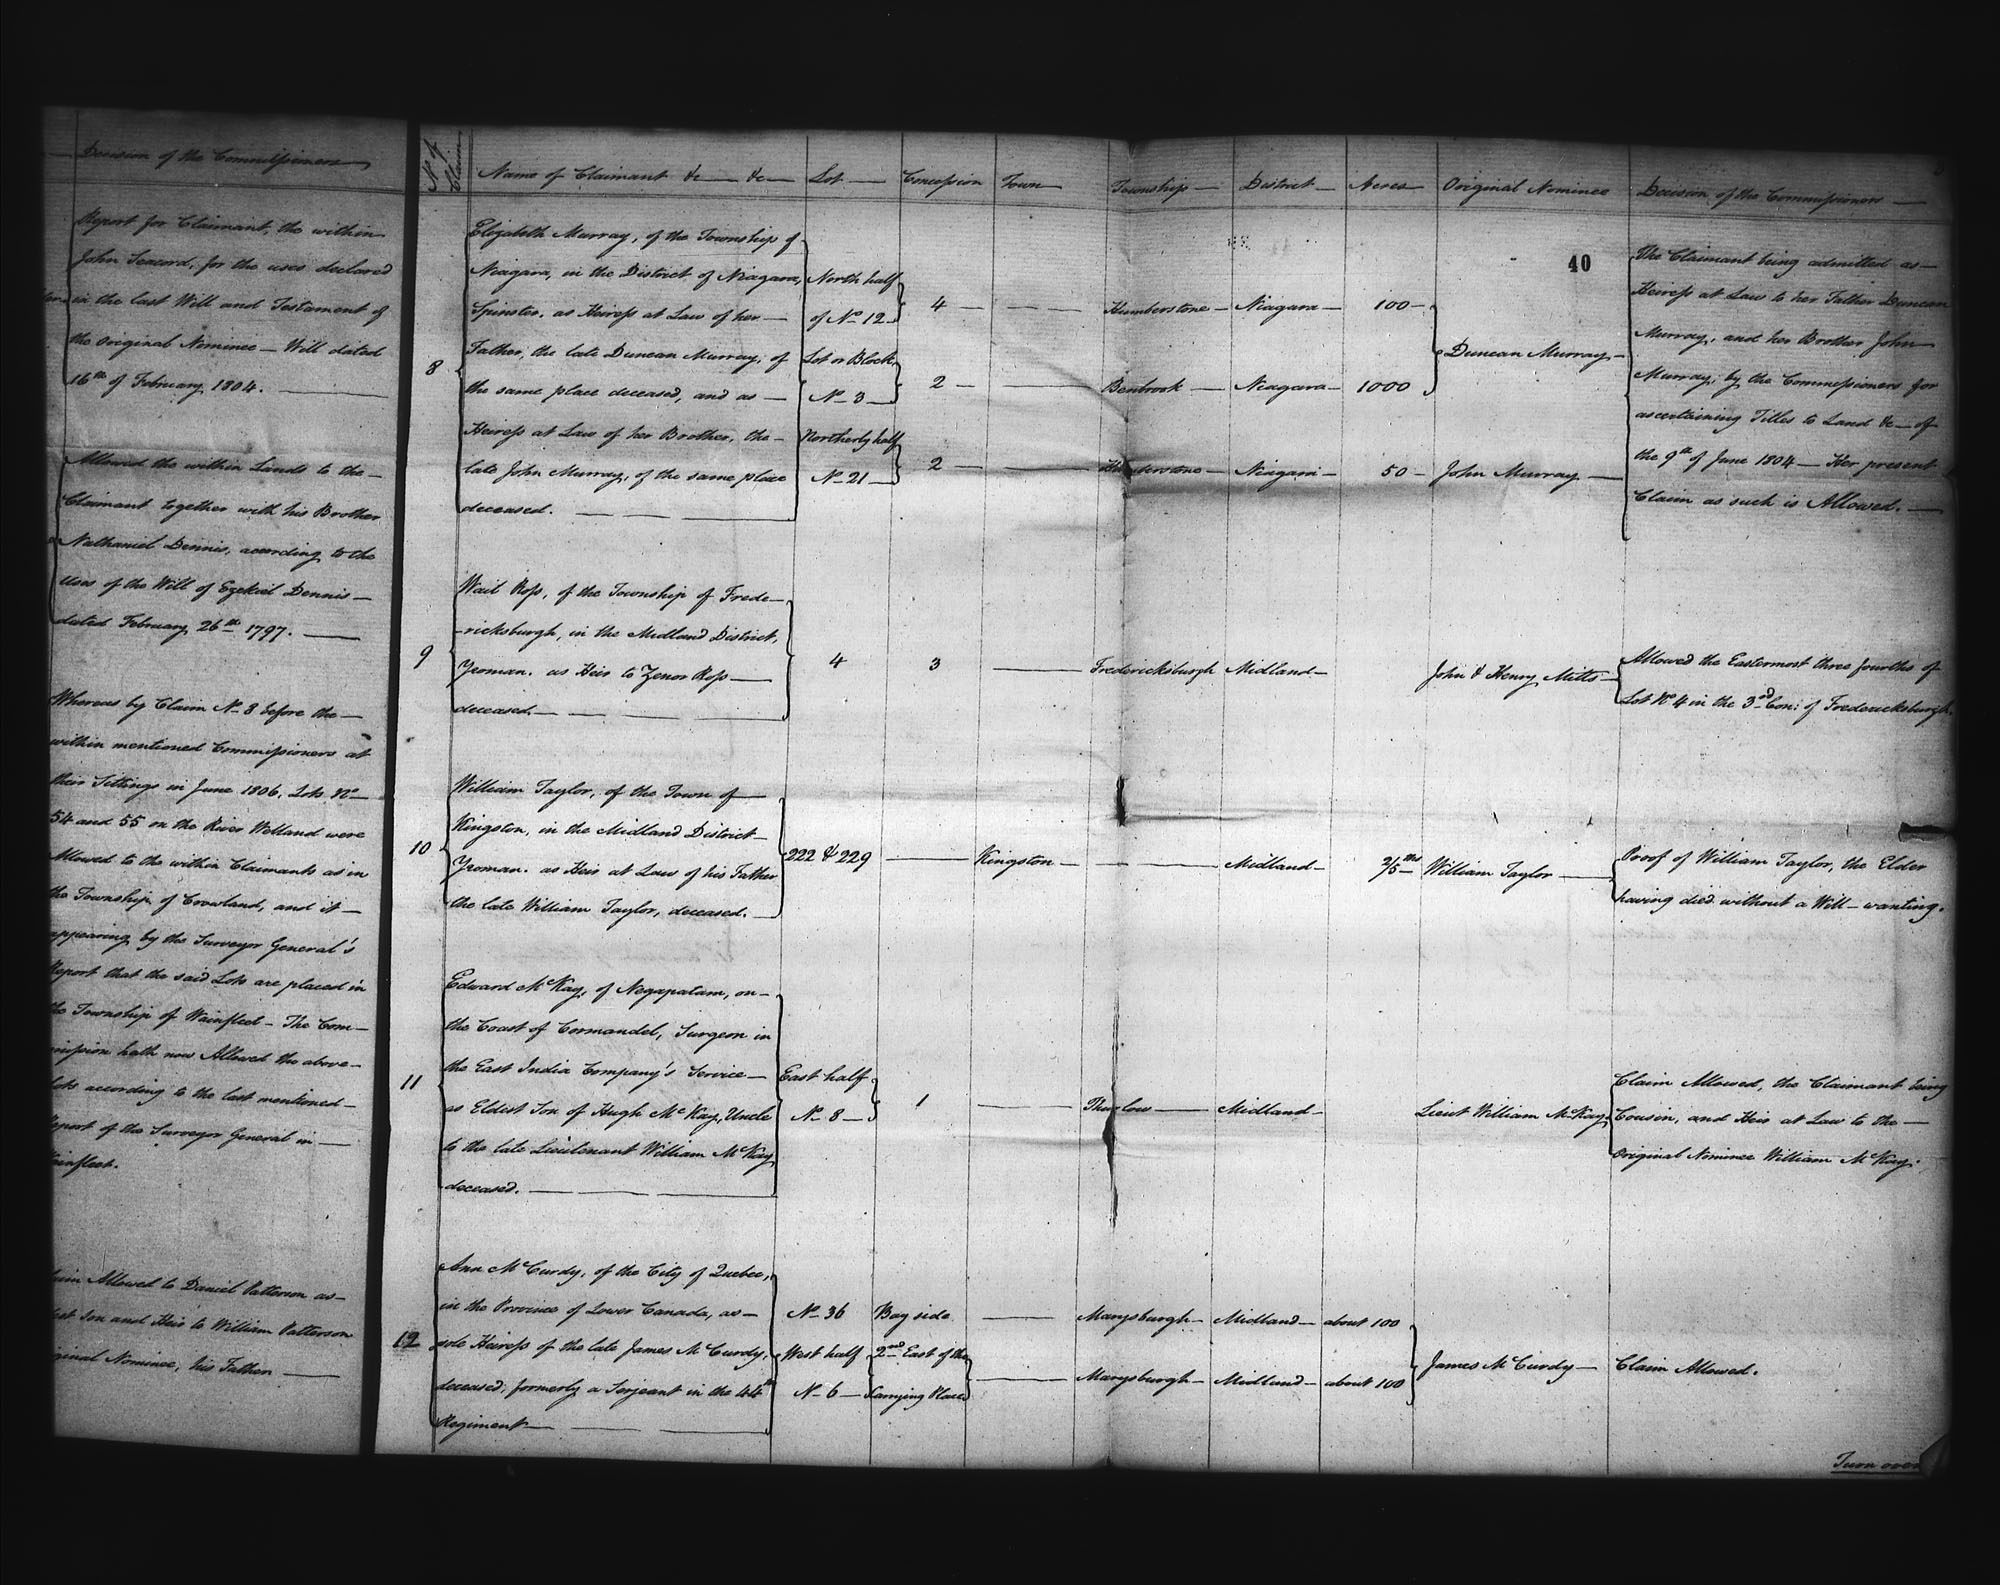 Decision of the Commissioners
Report for Claimant, the within
John Seacord, for the uses declared
in the last Will and Testament of
the Original Nominee — Will dated
16th of February 1804. —
Allowed the within Lands to the —
Claimant together with his Brother
Nathaniel Dennis, according to the
uses of the Will of Ezekiel Dennis —
dated February 26th 1797. —
Whereas by Claim No 8 before the —
within mentioned Commissioners at
their Sittings in June 1806, Lots No —
54 and 55 on the River Welland were
Allowed to the within Claimants as in
the Township of Crowland, and it —
appearing by the Surveyor General's
Report that the said Lots are placed in
the Township of Wainfleet — The Com—
mission hath now Allowed the above —
Lots according to the last mentioned —
Report of the Surveyor General in —
Wainfleet.
Claim Allowed to Daniel Patterson as —
Eldest Son and Heir to William Patterson
Original Nominee, his Father —
No of Claim
Name of Claimant &c — &c —
Lot —
Concession
Town
Township —
District —
Acres —
Original Nominee
Decision of the Commissioners —
40
8
Elizabeth Murray, of the Township of
Niagara, in the District of Niagara,
Spinster. as Heiress at Law of her —
Father, the late Duncan Murray, of
the same place deceased, and as —
Heiress at Law of her Brother, the —
late John Murray, of the same place
deceased. — — —
North half
of No 12
4 — — — Humberstone — Niagara — 100 —
Lot or Block
No 3
2 — — Benbrook — Niagara — 1000
Duncan Murray —
Northerly half
No 21
2 — — Humberstone — Niagara — 50 — John Murray —
The Claimant being admitted as —
Heiress at Law to her Father Duncan
Murray, and her Brother John
Murray, by the Commissioners for
ascertaining Titles to Land &c — of
the 9th of June 1804 — Her present
Claim as such is Allowed. —
9
Wait Ross, of the Township of Frede—
—ricksburgh, in the Midland District,
Yeoman. as Heir to Zenor Ross —
deceased. — — —
4 3 — Fredericksburgh Midland — John & Henry Mitts —
Allowed the Easternmost three fourths of
Lot No 4 in the 3rd Con: of Fredericksburgh.
10
William Taylor, of the Town of —
Kingston, in the Midland District —
Yeoman. as Heir at Law of his Father
the late William Taylor, deceased. —
222 & 229 — Kingston — — — Midland — 2/5ths William Taylor —
Proof of William Taylor, the Elder
having died without a Will — wanting.
11
Edward McKay, of Negapatam, on —
the Coast of Cormandel, Surgeon in
the East India Company's Service —
as Eldest Son of Hugh McKay, Uncle
to the late Lieutenant William McKay
deceased. — — —
East half
No 8 —
1 — Thurlow — Midland — Lieut William McKay
Claim Allowed, the Claimant being
Cousin, and Heir at Law to the —
Original Nominee William McKay.
12
Ann McCurdy, of the City of Quebec,
in the Province of Lower Canada, as —
sole Heiress of the late James McCurdy,
deceased, formerly a Serjeant in the 44th
Regiment — — —
No 36 Bay side — Marysburgh — Midland — about 100
West half
No 6 —
2nd East of the
Carrying Place
— Marysburgh — Midland — about 100
James McCurdy — Claim Allowed.
Turn over